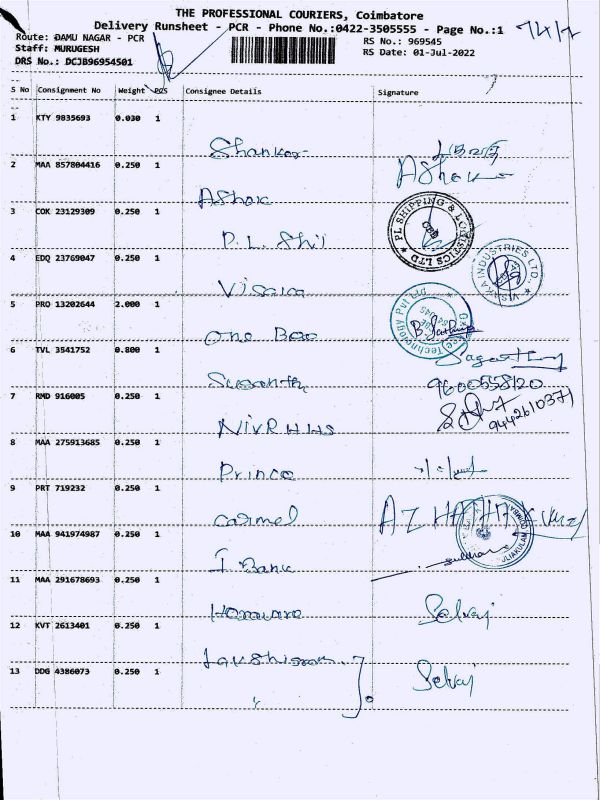 THE PROFESSIONAL COURIERS, Coimbatore
Delivery Runsheet - PCR - Phone No.:0422-3505555 - Page No.:1
Route: DAMU NAGAR - PCR
RS No.: 969545
Staff: MURUGESH
RS Date: 01-Jul-2022
DRS No.: DCJB96954501
S No Consignment No Weight PCS Consignee Details Signature
1 KTY 9835693 0.030 1
Shankar
2 MAA 857804416 0.250 1
Ashok
Ashok
3 COK 23129309 0.250 1
P.L. Shi
PL SHIPPING & LOGISTICS LTD
4 EDQ 23769047 0.250 1
Visaka
VISAKA INDUSTRIES LTD.,
5 PRO 13202644 2.000 1
One Bee
Technology Pvt Ltd
6 TVL 3541752 0.800 1
Susanth
9600558120
7 RMD 916005 0.250 1
9442610371
8 MAA 275913685 0.250 1
Prince
9 PRT 719232 0.250 1
Carmel
10 MAA 941974987 0.250 1
I Bank
PULIAKULAM
11 MAA 291678693 0.250 1
Selvaj
12 KVT 2613401 0.250 1
13 DDG 4386073 0.250 1
Selvaj